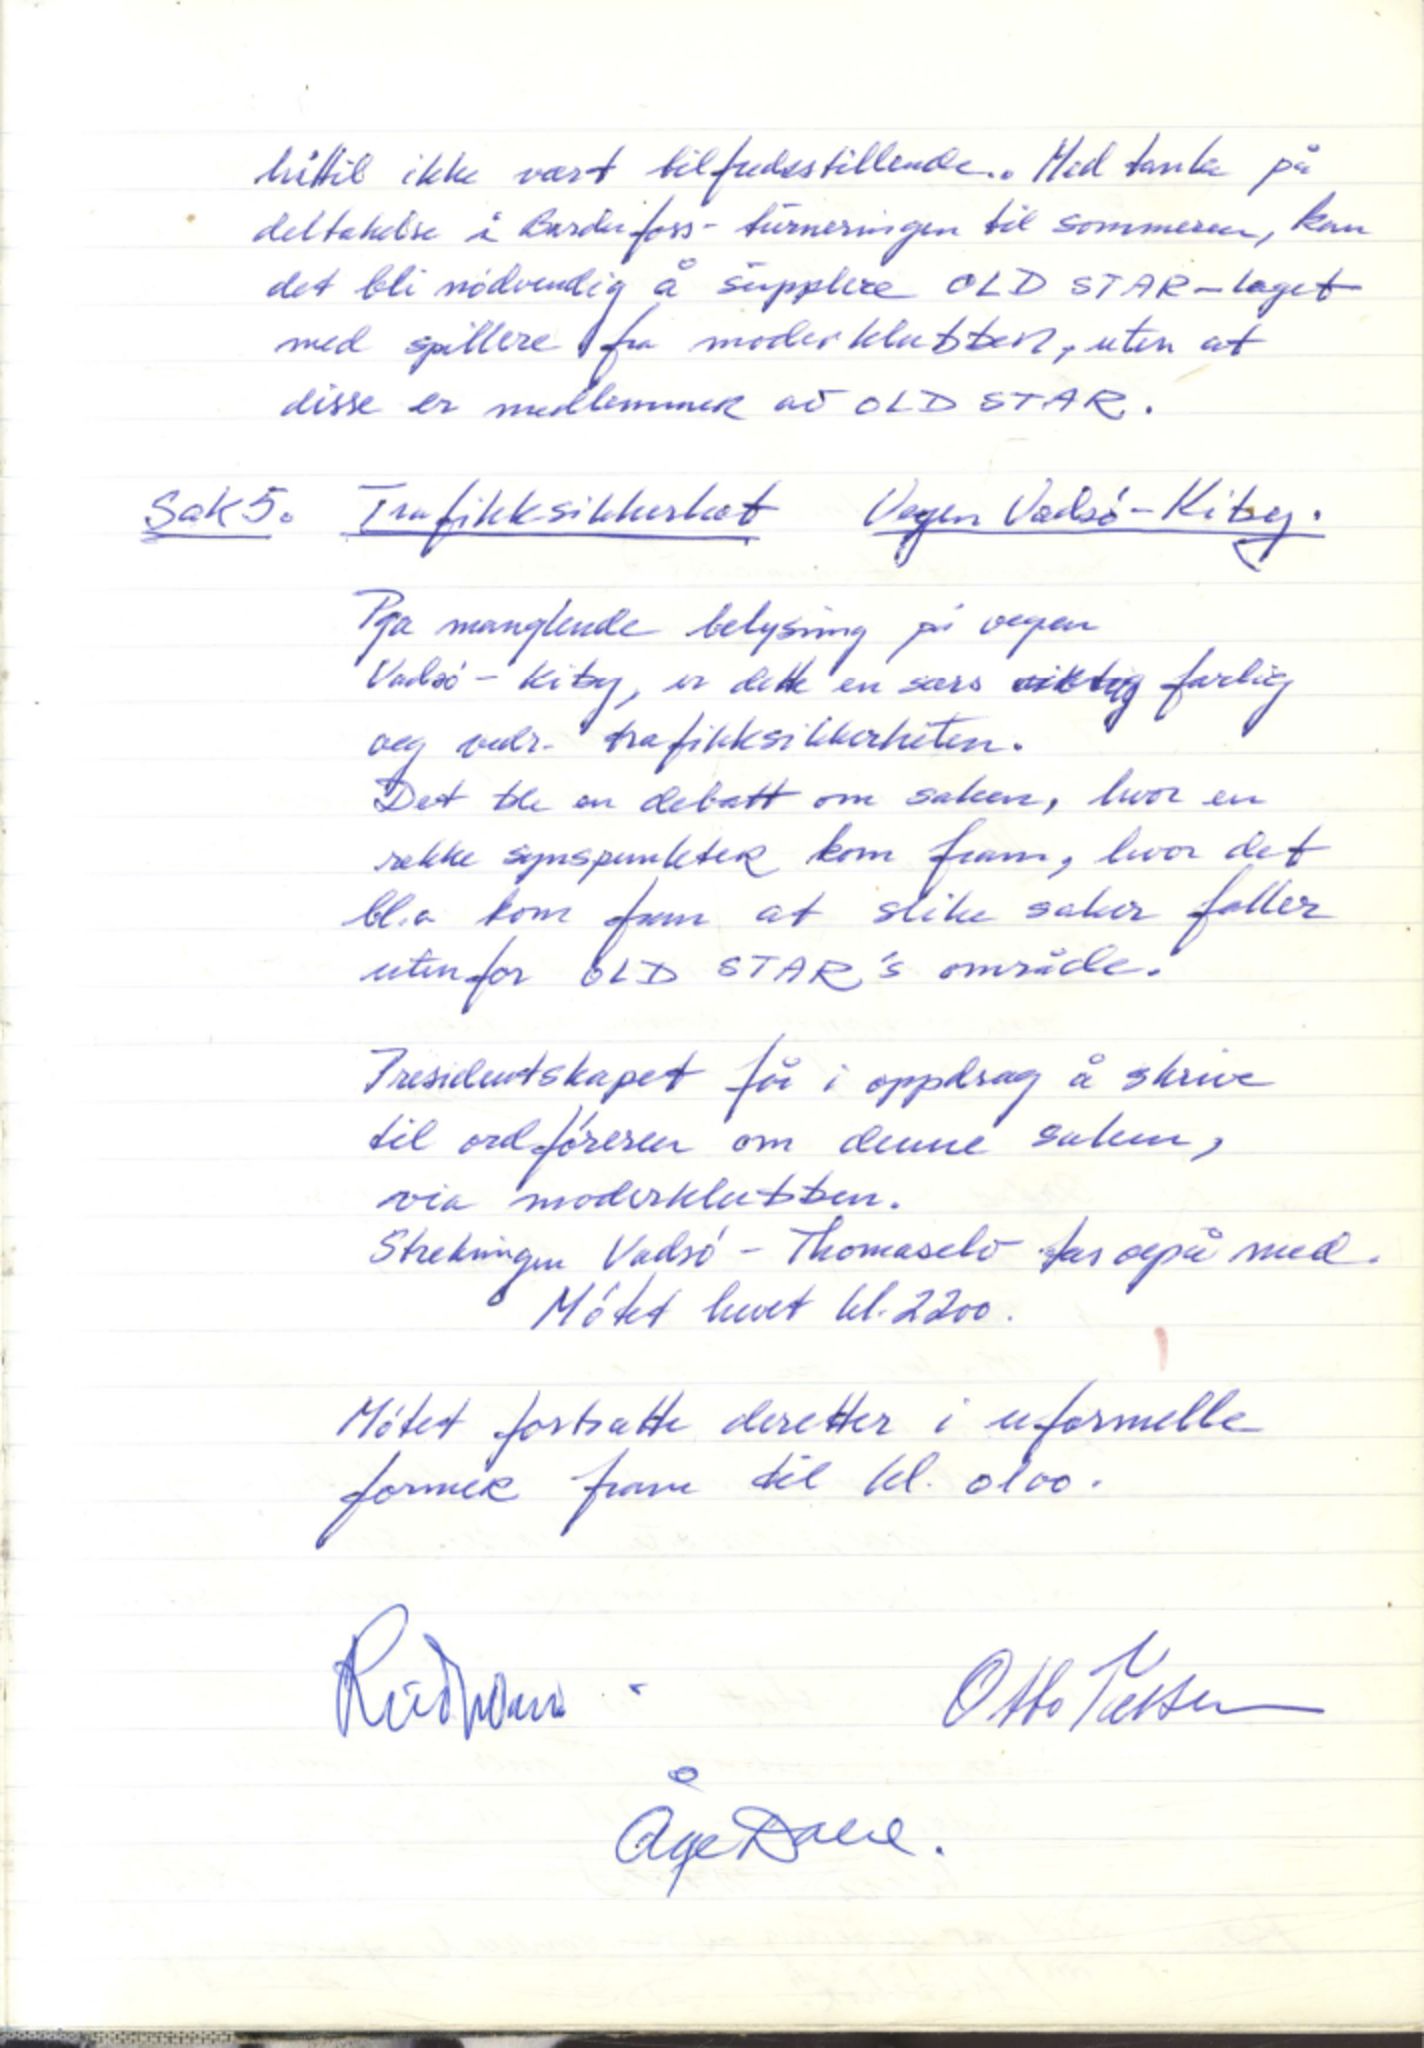 hittil ikke vært tilfredsstillende. Med tanke på
deltakelse i Bardufoss-turneringen til sommeren, kan
det bli nødvendig å supplere OLD STAR-laget
med spillere fra moderklubben, uten at
disse er medlemmer av OLD STAR.
Sak 5. Trafikksikkerhet Vegen Vadsø-Kiby.
Pga manglende belysning på vegen
Vadsø-Kiby, er dette en særs viktig farlig
veg vedr. trafikksikkerheten.
Det ble en debatt om saken, hvor en
rekke synspunkter kom fram, hvor det
bl.a kom fram at slike saker faller
utenfor OLD STAR's område.
Presidentskapet får i oppdrag å skrive
til ordføreren om denne saken,
via moderklubben.
Strekningen Vadsø - Thomaselv tas også med.
Møtet hevet kl. 2200.
Møtet fortsatte deretter i uformelle
former fram til kl. 0100.
Otto
Åge